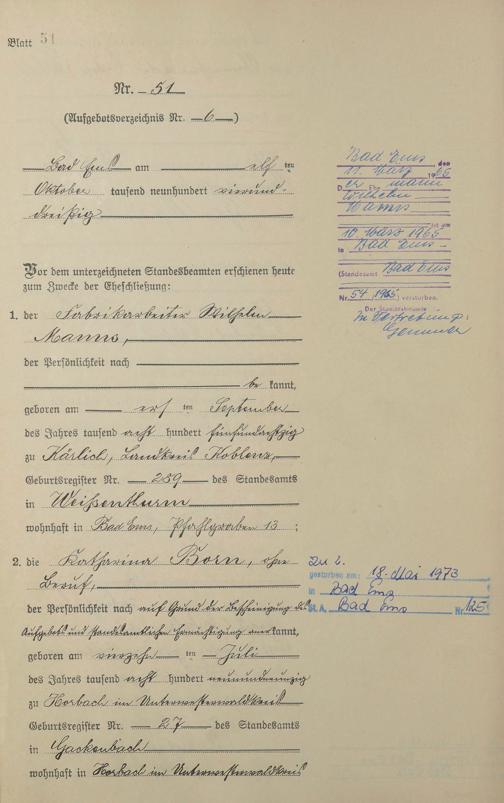 Blatt 51
Nr. 51
(Aufgebotsverzeichnis Nr. 6)
Bad Ems am elf ten
Oktober tausend neunhundert vierund-
dreißig
Vor dem unterzeichneten Standesbeamten erschienen heute
zum Zwecke der Eheschließung:
1. der Fabrikarbeiter Wilhelm
Manns,
der Persönlichkeit nach
be kannt,
geboren am ers ten September
des Jahres tausend acht hundert fünfundachtzig
zu Kärlich, Landkreis Koblenz,
Geburtsregister Nr. 259 des Standesamts
in Weißenthurm
wohnhaft in Bad Ems, Pfahlgraben 13;
2. die Katharina Born, ohne
Beruf,
der Persönlichkeit nach auf Grund der Bescheinigung des
Aufgebots und standesamtlichen Ermächtigung anerkannt,
geboren am vierzehn ten Juli
des Jahres tausend acht hundert neunundneunzig
zu Horbach im Unterwesterwaldkreis
Geburtsregister Nr. 27 des Standesamts
in Gackenbach
wohnhaft in Horbach im Unterwesterwaldkreis
Bad Ems den
11. März 1965
D er mann
Wilhelm
Manns
ist am
10. März 1965
in Bad Ems
(Standesamt Bad Ems
Nr. 54/1965) verstorben.
Der Standesbeamte
In Vertretung:
Zu 2.
gestorben am: 18. Mai 1973
in Bad Ems
St. A. Bad Ems Nr. 125